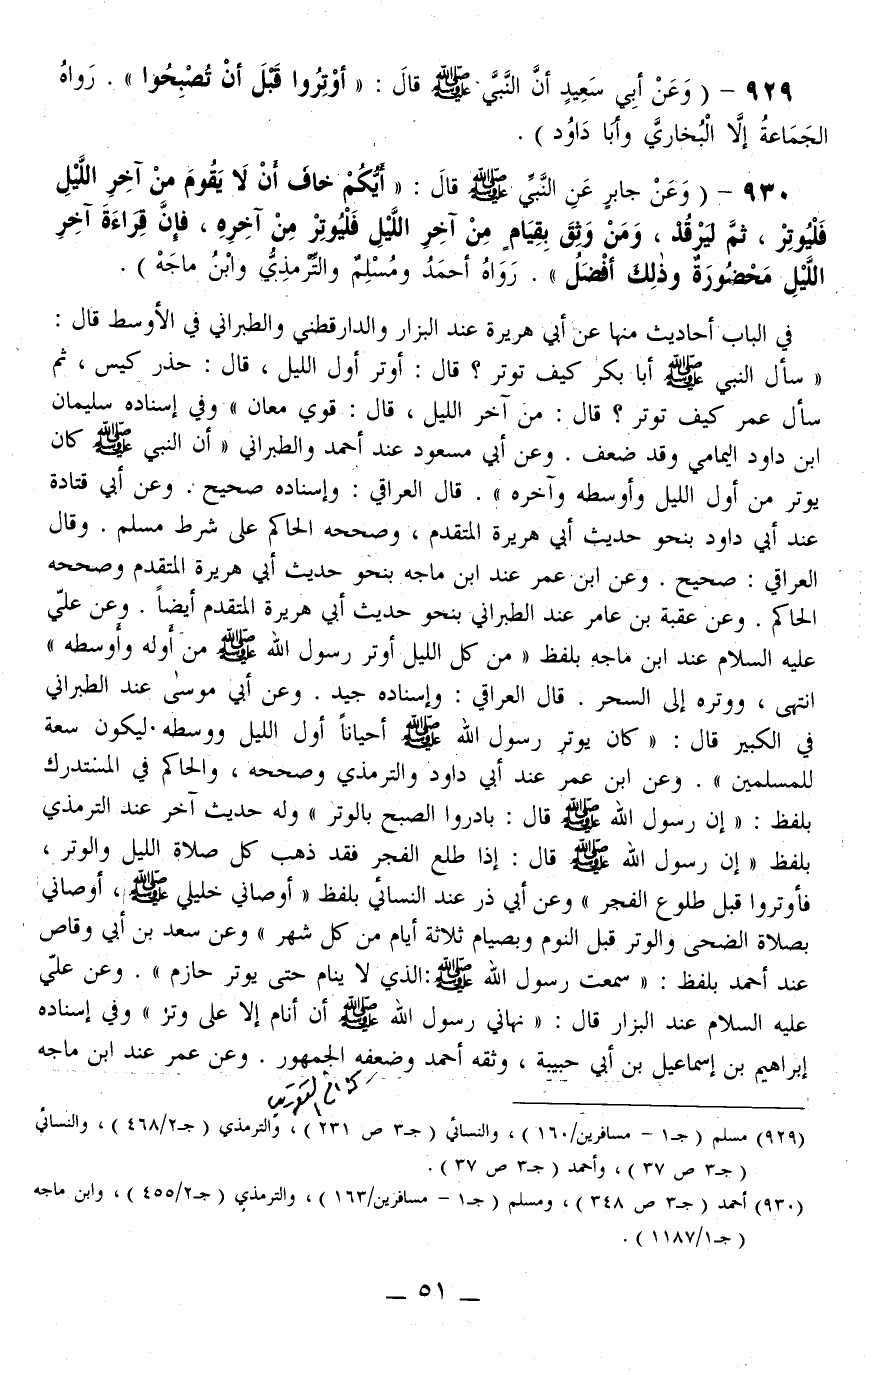 ٩٢٩ - ( وَعَنْ أَبِي سَعِيدٍ أنَّ النَّبيَّ ﷺ قالَ : « أوْتِرُوا قَبْلَ أنْ تُصْبِحُوا » . رَواهُ
الجَمَاعةُ إلَّا الْبُخاريَّ وأبَا دَاوُد ) .
٩٣٠ - ( وَعَنْ جابرٍ عَنِ النَّبيِّ ﷺ قالَ : « أيُّكُمْ خافَ أَنْ لَا يَقُومَ مِنْ آخِرِ اللَّيْلِ
فَلْيُوتِرْ ، ثمَّ ليَرْقُدْ ، وَمَنْ وَثِقَ بِقِيَامٍ مِنْ آخِرِ اللَّيْلِ فَلْيُوتِرْ مِنْ آخِرِهِ ، فإنَّ قِرَاءَةَ آخِرِ
اللَّيْلِ مَحْضُورَةٌ وذٰلِكَ أفْضَلُ » . رَوَاهُ أحمَدُ ومُسْلِمٌ والتِّرْمذِيُّ وابْنُ ماجَهْ ) .
في الباب أحاديث منها عن أبي هريرة عند البزار والدارقطني والطبراني في الأوسط قال :
« سأل النبي ﷺ أبا بكر كيف توتر ؟ قال : أوتر أول الليل ، قال : حذر كيس ، ثم
سأل عمر كيف توتر ؟ قال : من آخر الليل ، قال : قوي معان » وفي إسناده سليمان
ابن داود اليمامي وقد ضعف . وعن أبي مسعود عند أحمد والطبراني « أن النبي ﷺ كان
يوتر من أول الليل وأوسطه وآخره » . قال العراقي : وإسناده صحيح . وعن أبي قتادة
عند أبي داود بنحو حديث أبي هريرة المتقدم ، وصححه الحاكم على شرط مسلم . وقال
العراقي : صحيح . وعن ابن عمر عند ابن ماجه بنحو حديث أبي هريرة المتقدم وصححه
الحاكم . وعن عقبة بن عامر عند الطبراني بنحو حديث أبي هريرة المتقدم أيضاً . وعن عليّ
عليه السلام عند ابن ماجه بلفظ « من كل الليل أوتر رسول الله ﷺ من أَوله وأَوسطه »
انتهى ، ووتره إلى السحر . قال العراقي : وإسناده جيد . وعن أبي موسىٰ عند الطبراني
في الكبير قال : « كان يوتر رسول الله ﷺ أحياناً أول الليل ووسطه ليكون سعة
للمسلمين » . وعن ابن عمر عند أبي داود والترمذي وصححه ، والحاكم في المستدرك
بلفظ : « إن رسول الله ﷺ قال : بادروا الصبح بالوتر » وله حديث آخر عند الترمذي
بلفظ « إن رسول الله ﷺ قال : إذا طلع الفجر فقد ذهب كل صلاة الليل والوتر ،
فأوتروا قبل طلوع الفجر » وعن أبي ذر عند النسائي بلفظ « أوصاني خليلي ﷺ ، أوصاني
بصلاة الضحى والوتر قبل النوم وبصيام ثلاثة أيام من كل شهر » وعن سعد بن أبي وقاص
عند أحمد بلفظ : « سمعت رسول الله ﷺ : الذي لا ينام حتى يوتر حازم » . وعن عليّ
عليه السلام عند البزار قال : « نهاني رسول الله ﷺ أن أنام إلا على وتر » وفي إسناده
إبراهيم بن إسماعيل بن أبي حبيبة ، وثقه أحمد وضعفه الجمهور . وعن عمر عند ابن ماجه
(٩٢٩) مسلم ( جـ١ - مسافرين/١٦٠ ) ، والنسائي ( جـ٣ ص ٢٣١ ) ، والترمذي ( جـ٤٦٨/٢ ) ، والنسائي
( جـ٣ ص ٣٧ ) ، وأحمد ( جـ٣ ص ٣٧ ) .
(٩٣٠) أحمد ( جـ٣ ص ٣٤٨ ) ، ومسلم ( جـ١ - مسافرين/١٦٣ ) ، والترمذي ( جـ٤٥٥/٢ ) ، وابن ماجه
( جـ١١٨٧/١ ) .
ــ ٥١ ــ